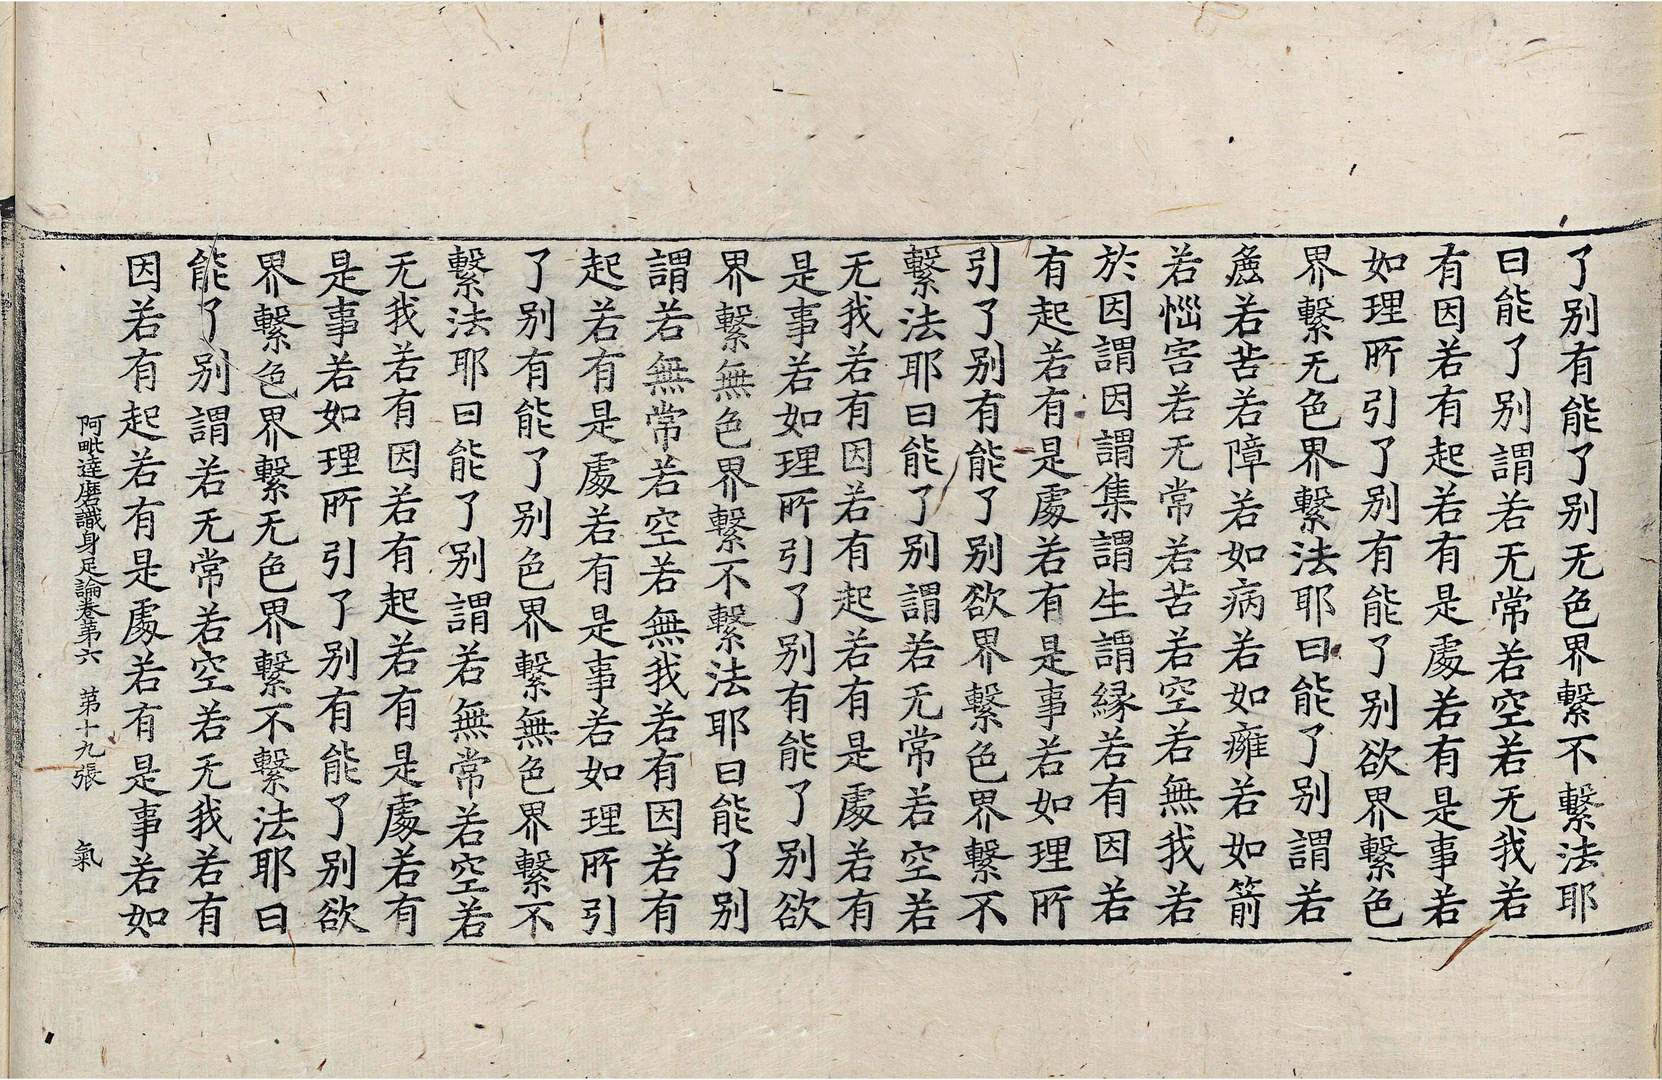 了别有能了别无色界繫不繫法耶
曰能了别謂若无常若空若无我若
有因若有起若有是處若有是事若
如理所引了别有能了别欲界繫色
界繫无色界繫法耶曰能了别謂若
麁若苦若障若如病若如癰若如箭
若惱害若无常若苦若空若無我若
於因謂因謂集謂生謂縁若有因若
有起若有是處若有是事若如理所
引了别有能了别欲界繫色界繫不
繫法耶曰能了别謂若无常若空若
无我若有因若有起若有是處若有
是事若如理所引了别有能了别欲
界繫無色界繫不繫法耶曰能了别
謂若無常若空若無我若有因若有
起若有是處若有是事若如理所引
了别有能了别色界繫無色界繫不
繫法耶曰能了别謂若無常若空若
无我若有因若有起若有是處若有
是事若如理所引了别有能了别欲
界繫色界繫无色界繫不繫法耶曰
能了别謂若无常若空若无我若有
因若有起若有是處若有是事若如
阿毗達磨識身足論卷第六 第十九張 氣